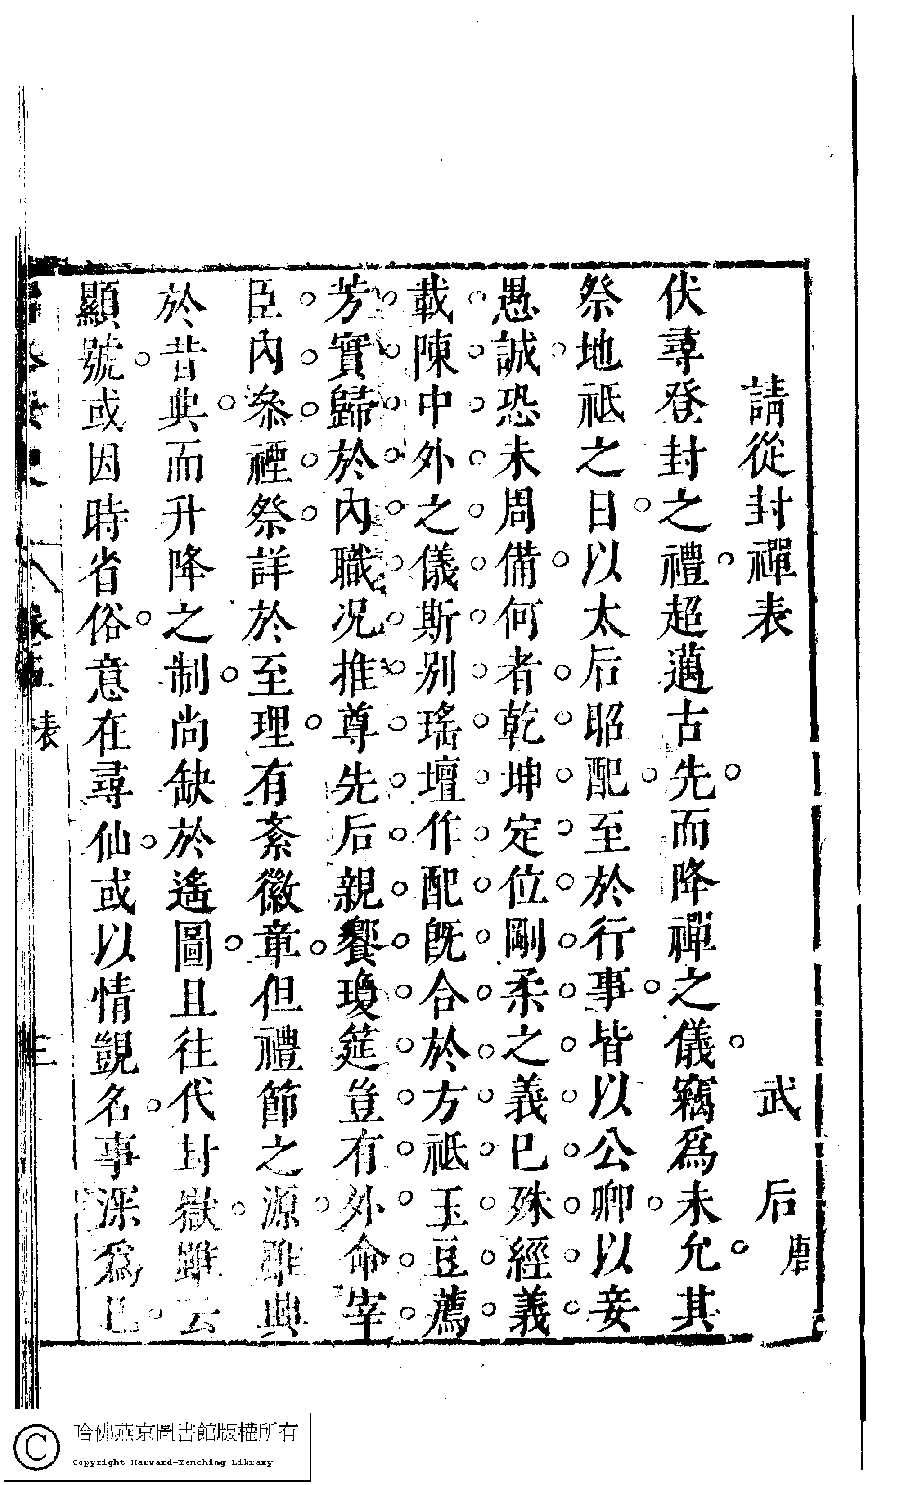 請從封禪表
武后唐
伏尋登封之禮超邁古先而降禪之儀竊為未允其
祭地祇之日以太后昭配至於行事皆以公卿以妾
愚誠恐未周備何者乾坤定位剛柔之義巳殊經義
載陳中外之儀斯別瑤壇作配既合於方祇玉豆薦
芳實歸於內職况推尊先后親饗瓊筵豈有外命宰
臣內叅禋祭詳於至理有紊徽章但禮節之源雖典
於昔典而升降之制尚缺於遙圖且往代封嶽雖云
顯號或因時省俗意在尋仙或以情覬名事深為巳
卷五 表
三
哈佛燕京圖書館版權所有
Copyright Harvard-Yenching Library